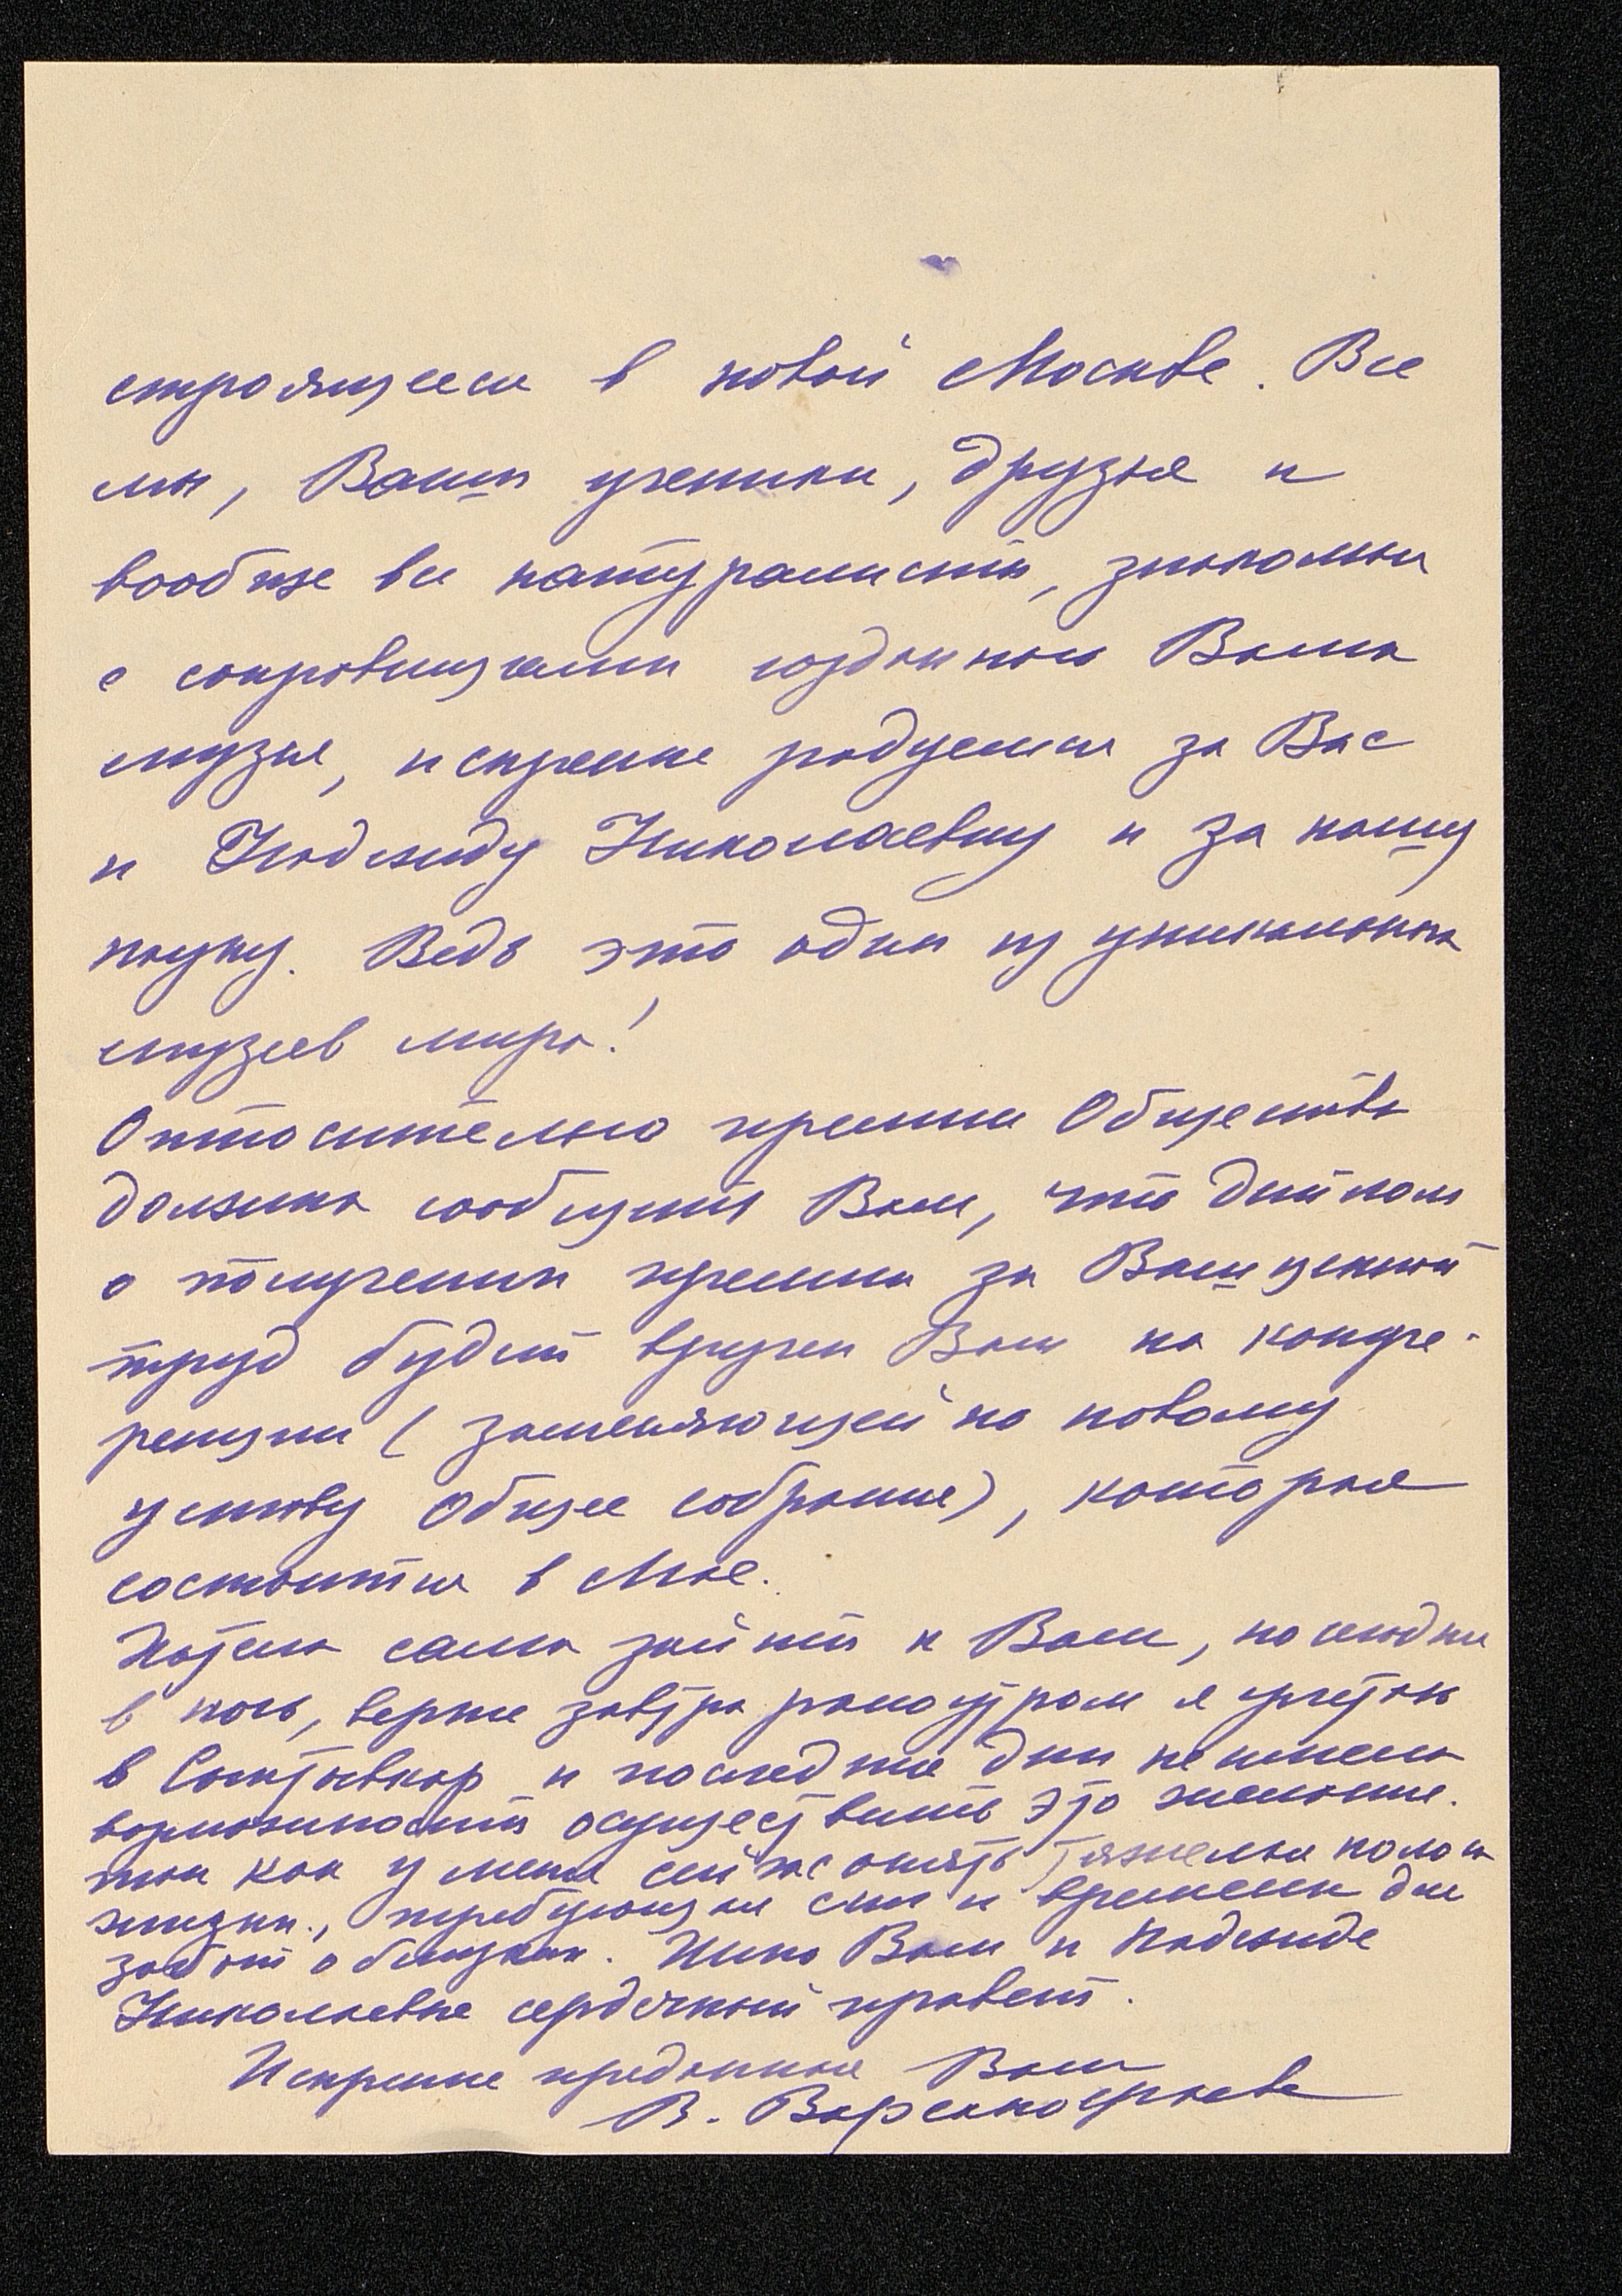 строящееся в новой Москве. Все
мы, Ваши ученики, друзья и
вообще все натуралисты, знакомые
с сокровищами созданного Вами
музея, искренне радуемся за Вас
и Надежду Николаевну и за нашу
науку. Ведь это один из уникальных
музеев мира!
Относительно премии Общества
должна сообщить Вам, что диплом
о получении премии за Ваш ценный
труд будет вручен Вам на конфе-
ренции (заменяющей по новому
уставу общее собрание), которая
состоится в мае.
Хотела сама зайти к Вам, но сегодня
в ночь, вернее завтра рано утром я улетаю
в Сыктывкар и последние дни не имела
возможности осуществить это желание.
так как у меня сейчас опять тяжелая полоса
жизни, требующая сил и времени для
забот о близких. Шлю Вам и Надежде
Николаевне сердечный привет.
Искренне преданная Вам
В. Варсанофьева